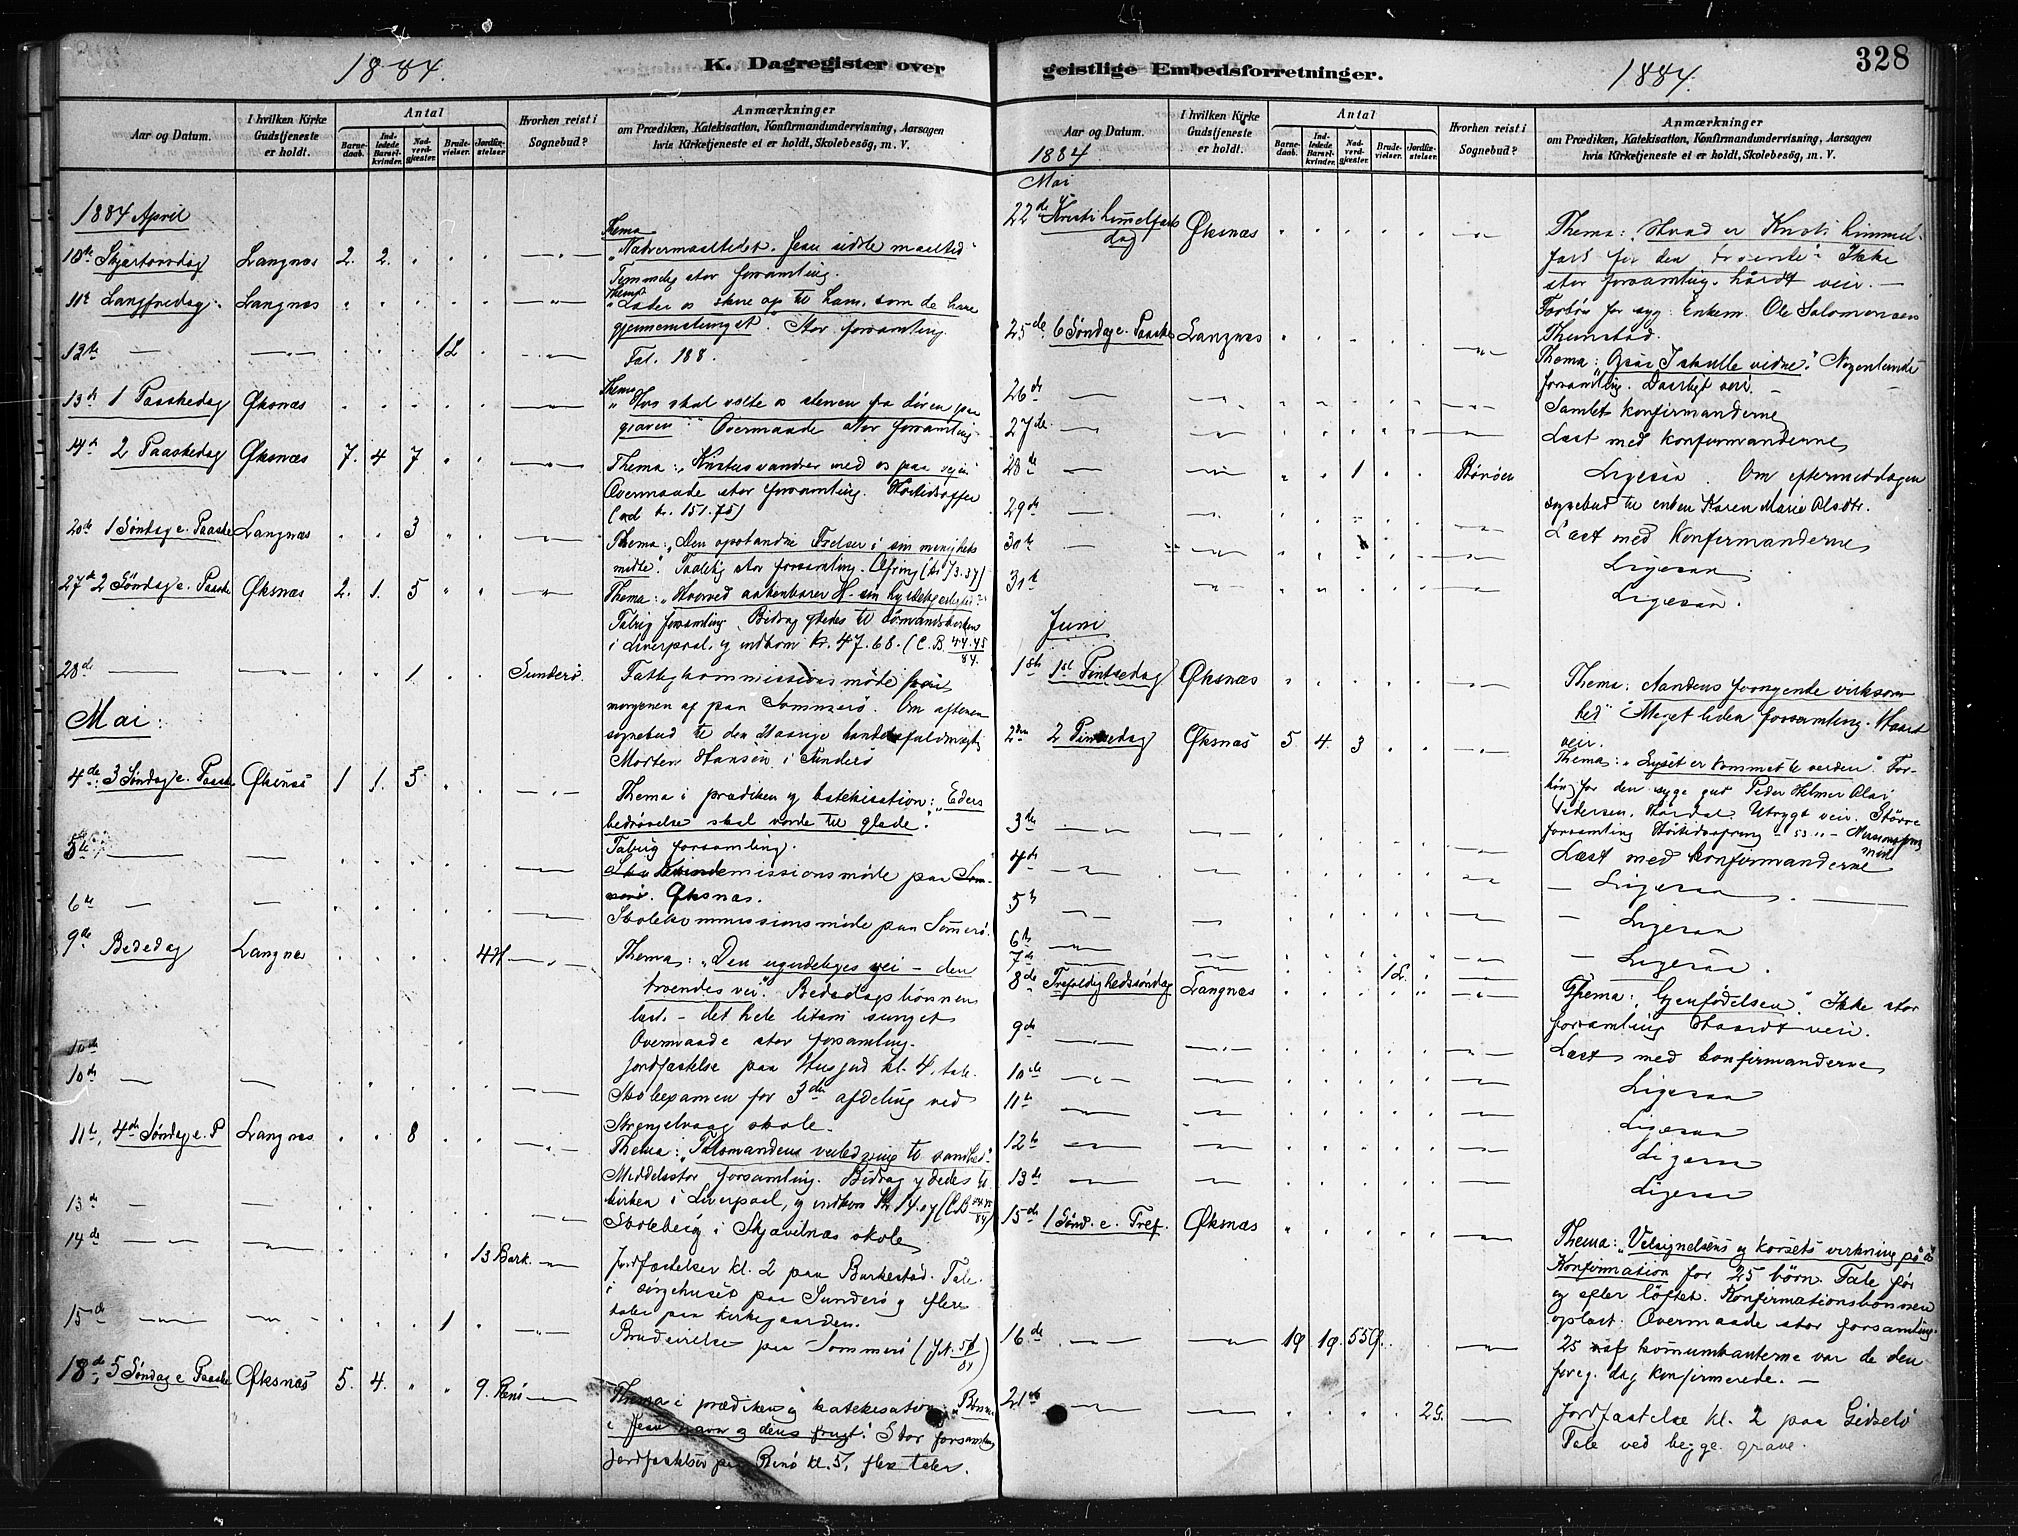 1884.
K. Dagregister over
Aar og Datum.
I hvilken Kirke Gudstjeneste er holdt.
Antal
Barnedaab.
Indledede Barselkvinder.
Nadverdgjester.
Brudevielser.
Jordfæstelser
Hvorhen reist i Sognebud?
Anmærkninger
om Prædiken, Katekisation, Konfirmandundervisning, Aarsagen
hvis Kirketjeneste ei er holdt, Skolebesög, m. V.
1884 April
Thema
10de Skjærtorsdag Langnes 2. 2. „Nadvermaaltidet. Jesu sidste maaltid“
Temmelig stor forsamling.
11te Langfredag. Langnes
gjennemstunget“. Stor forsamling.
12te 1L Tal. 188.
Thema
13de 1 Paaskedag Øksnæs „Hvo skal vælte os stenen fra døren paa
graven“ Overmaade stor forsamling.
14de 2 Paaskedag Øksnæs 7. 4 7 Thema: „Kristus vandrer med os paa vejen“
Overmaade stor forsamling.
kr. 151.75)
20de 1 Søndag e. Paaske Langnæs 3 Thema: „Den opstandne Frelser i sin menigheds
midte“. Taalelig stor forsamling.
27de 2 Søndag e. Paaske Øksnæs 2. 1. 5 Thema:
Talrig forsamling. Bidrag ydedes til Sømandskirken
i Liverpool, og indkom kr. 47.68. (C.B. 44.45/84.
28de 1 Sunderø. Fattigkommissionsmøde
morgenen af paa Sommerø. Om aftenen
sognebud til den
Morten Hansen i Sunderø
Mai:
4de 3 Søndag e. Paaske Øksnæs 1 1. 5 Thema i prædiken og katekisation: „Eders
bedrøvelse skal vorde til glæde“.
Talrig forsamling.
5te missionsmøde paa
Øksnæs.
6te Skolekommissionsmøde paa Sommerø.
9de Bededag Langnes 4H Thema: „Den ugudeliges vei – den
troendes vei“. Bededagsbønnen
læst. – det hele litani sunget
Overmaade stor forsamling.
10de Jordfæstelse paa Husjord kl. 4. tale.
10de Skoleexamen for 3die afdeling ved
Strengelvaag skole.
11te, 4de Søndag e. P Langnæs 8 Thema: „Talsmandens veiledning til sandhed“.
Middelsstor forsamling. Bidrag ydedes til
kirken i Liverpool, og indkom
13de Skolebesøg i Skjævelnæs skole
14de 13 Bark. Jordfæstelser kl. 2 paa Barkestad. Tale
i sørgehuset paa Sunderø og flere
taler paa kirkegaarden.
15de 1 Brudvielse paa Sommerø
18de, 5 Søndag e Paaske Øksnæs 5. 4. 9. Renø Thema i prædiken og katekisation: „Bønnen
i Jesu navn og dens frugt“. Stor forsamling.
Jordfæstelser paa Renø kl. 5, flere taler.
geistlige Embedsforretninger.
1884.
328
Aar og Datum.
1884
I hvilken Kirke Gudstjeneste er holdt.
Antal
Barnedaab.
Indledede Barselkvinder.
Nadverdgjester.
Brudevielser.
Jordfæstelser.
Hvorhen reist i Sognebud?
Anmærkninger
om Prædiken, Katekisation, Konfirmandundervisning, Aarsagen
hvis Kirketjeneste ei er holdt, Skolebesög, m. V.
Mai
22de Kristi himmelfarts
dag Øksnæs Thema: „Hvad er Kristi himmel-
fart for den troende“. Ikke
stor forsamling. hårdt veir. –
Forbøn for syg: Enkem. Ole Salomonsen
Thinstad.
25de 6 Søndag e. Paaske Langnæs Thema: „Også I skulle vidne“. Nogenlunde
forsamling. Daarligt veir. –
26de Samlet konfirmanderne
27de Læst med konfirmanderne
28de 1 Børøen Ligesaa. Om eftermiddagen
sognebud til enken Karen Marie Olsdtr.
29de Læst med Konfirmanderne
30te Ligesaa
31te Ligesaa.
Juni
1ste 1st Pintsedag Øksnæs Thema: Aandens foryngende virksom-
hed“. Meget liden forsamling. Haardt
veir.
2den 2 Pintsedag Øksnæs 5. 4. 3 Thema: „Lyset er kommet til verden“. For-
bøn for den syge gut Peder Hilmer Olai
Pedersen,
forsamling
3die Læst med konfirmanderne
4de Ligesaa.
5te Ligesaa
6te Ligesaa.
7de 1L.
8de Trefoldighedssøndag Langnæs Thema: „Gjenfødelsen“. Ikke stor
forsamling Haardt veir.
9de Læst med konfirmanderne
10de Ligesaa
11te Ligesaa
12te Ligesaa
13de Ligesaa
15de 1 Sønd. e. Tref. Øksnæs Thema: „Velsignelsens og korsets virkning på os“
Konfirmation for 25 børn. Tale før
og efter løftet. Konfirmationsbønnen
oplæst. Overmaade stor forsamling.
16de 19 19. 559. 25 af kommunikanterne var de den
foreg. dag konfirmerede. –
21de 2G. Jordfæstelse kl. 2 paa Gidselø
Tale ved begge grave.